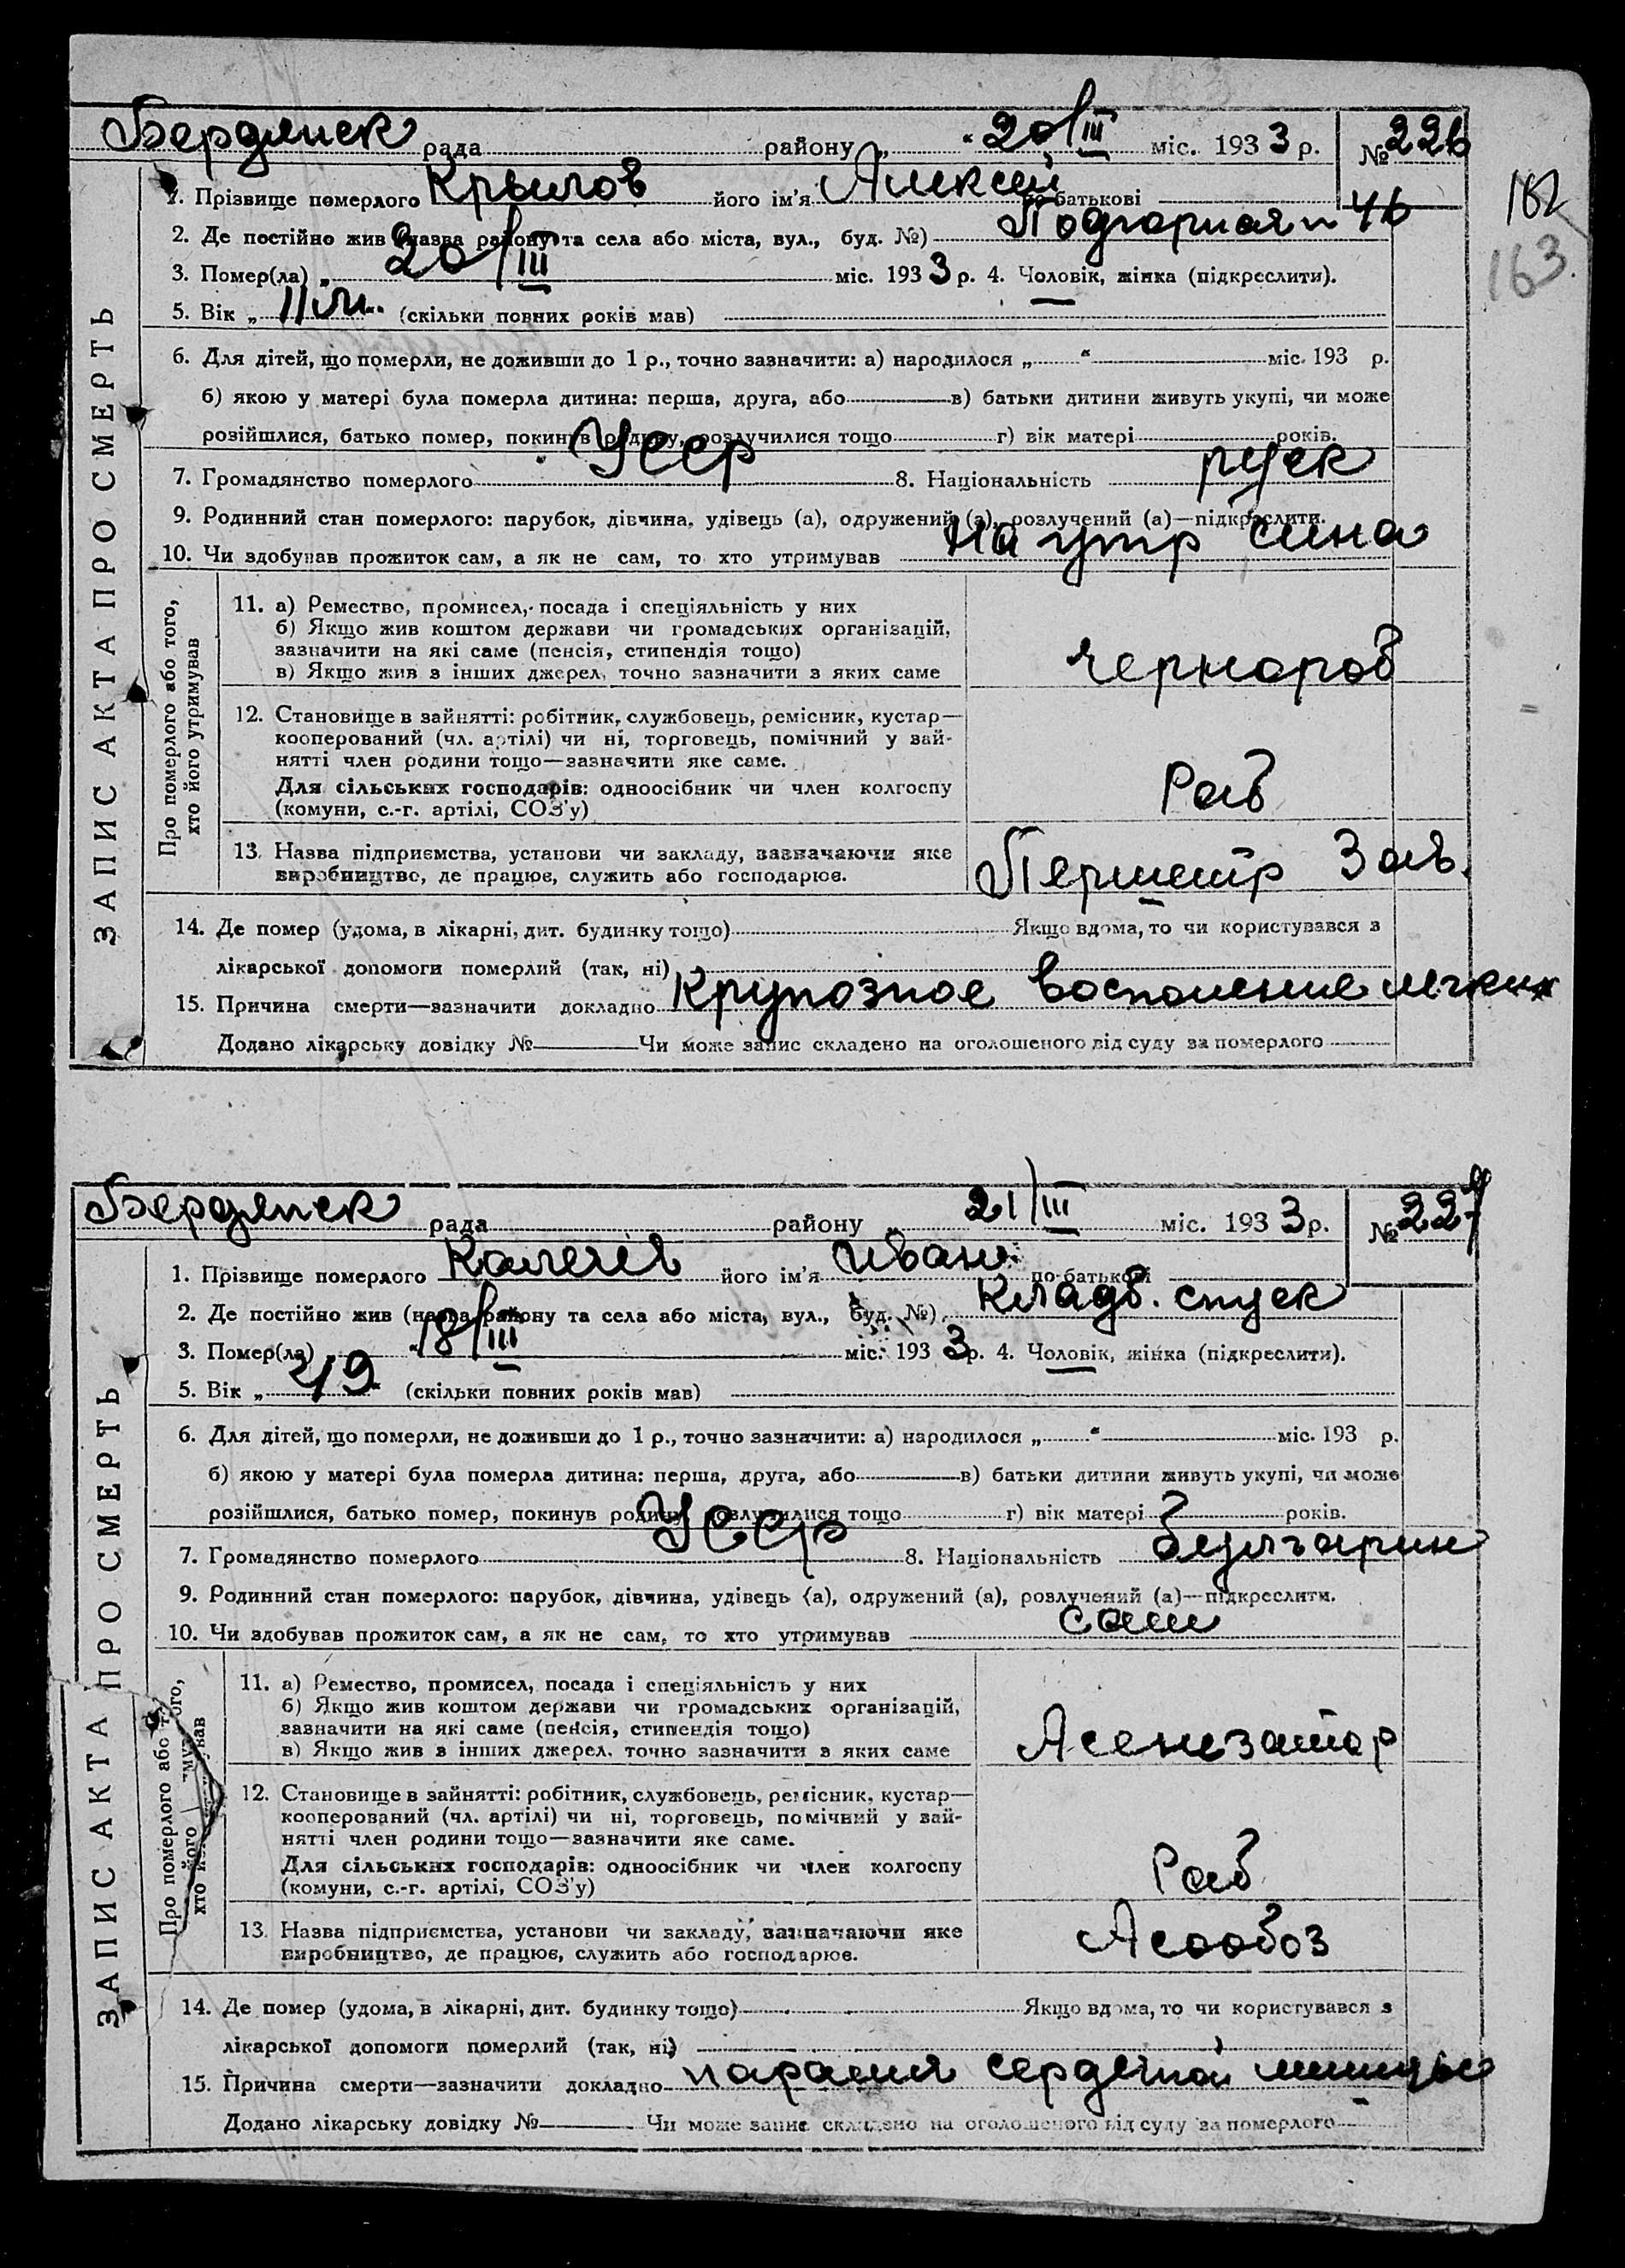 Бердянск рада района „ 20/III міс. 1933 р. № 226
1. Прізвище померлого Крылов його ім'я Алексей по батькові
162
2. Де постійно жив (назва району та села або міста, вул., буд. №) Подгорная 46
163.
3. Помер(ла) „ 20/III міс. 1933 р. 4. Чоловік, жінка (підкреслити).
5. Вік „ 11 м. (скільки повних років мав)
6. Для дітей, що померли, не доживши до 1 р., точно зазначити: а) народилося „ “ міс. 193 р.
б) якою у матері була померла дитина: перша, друга, або в) батьки дитини живуть укупі, чи може
розійшлися, батько помер, покинув родину, розлучилися тощо г) вік матері років.
7. Громадянство померлого Усср 8. Національність руск
9. Родинний стан померлого: парубок, дівчина, удівець (а), одружений (а), розлучений (а)—підкреслити.
10. Чи здобував прожиток сам, а як не сам, то хто утримував на утр сина
ЗАПИС АКТА ПРО СМЕРТЬ
Про померлого або того, хто його утримував
11. а) Ремество, промисел, посада і спеціяльність у них
б) Якщо жив коштом держави чи громадських організацій,
зазначити на які саме (пенсія, стипендія тощо)
в) Якщо жив з інших джерел, точно зазначити з яких саме
чернораб
12. Становище в зайнятті: робітник, службовець, ремісник, кустар—
кооперований (чл. артілі) чи ні, торговець, помічний у зай-
нятті член родини тощо—зазначити яке саме.
Для сільських господарів: одноосібник чи член колгоспу
(комуни, с.-г. артілі, СОЗ'у)
Раб
13. Назва підприємства, установи чи закладу, зазначаючи яке
виробництво, де працює, служить або господарює.
Першетр Зав.
14. Де помер (удома, в лікарні, дит. будинку тощо) Якщо вдома, то чи користувався з
лікарської допомоги померлий (так, ні)
15. Причина смерти—зазначити докладно Крупозное восполение легких
Додано лікарську довідку № Чи може запис складено на оголошеного від суду за померлого
Бердянск рада району „ 21/III міс. 1933 р. № 227
1. Прізвище померлого його ім'я Иван по-батькові
2. Де постійно жив (назва району та села або міста, вул., буд. №) Кладб. спуск
3. Помер(ла) „ 18/III міс. 1933 р. 4. Чоловік, жінка (підкреслити).
5. Вік „ 49 (скільки повних років мав)
6. Для дітей, що померли, не доживши до 1 р., точно зазначити: а) народилося „ “ міс. 193 р.
б) якою у матері була померла дитина: перша, друга, або в) батьки дитини живуть укупі, чи може
розійшлися, батько помер, покинув родину, розлучилися тощо г) вік матері років.
7. Громадянство померлого Усср 8. Національність булгарин
9. Родинний стан померлого: парубок, дівчина, удівець (а), одружений (а), розлучений (а)—підкреслити.
10. Чи здобував прожиток сам, а як не сам, то хто утримував сам
ЗАПИС АКТА ПРО СМЕРТЬ
Про померлого або того, хто його утримував
11. а) Ремество, промисел, посада і спеціяльність у них
б) Якщо жив коштом держави чи громадських організацій,
зазначити на які саме (пенсія, стипендія тощо)
в) Якщо жив з інших джерел, точно зазначити з яких саме
Асенезатор
12. Становище в зайнятті: робітник, службовець, ремісник, кустар—
кооперований (чл. артілі) чи ні, торговець, помічний у зай-
нятті член родини тощо—зазначити яке саме.
Для сільських господарів: одноосібник чи член колгоспу
(комуни, с.-г. артілі, СОЗ'у)
Раб
13. Назва підприємства, установи чи закладу, зазначаючи яке
виробництво, де працює, служить або господарює.
Асообоз
14. Де помер (удома, в лікарні, дит. будинку тощо) Якщо вдома, то чи користувався з
лікарської допомоги померлий (так, ні)
15. Причина смерти—зазначити докладно паралич сердечной мишцы
Додано лікарську довідку № Чи може запис складено на оголошеного від суду за померлого